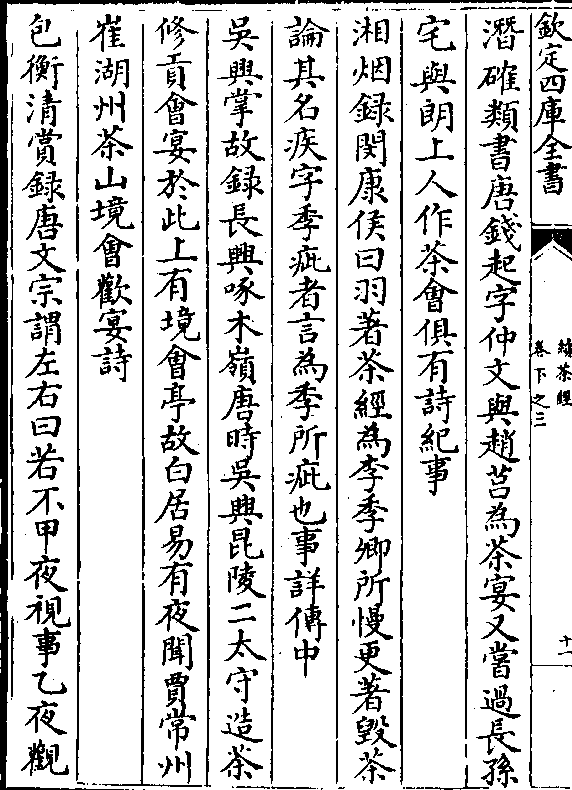 欽定四庫全書
續茶經
卷下之三
十一
潛確類書唐錢起字仲文與趙莒為茶宴又嘗過長孫
宅與朗上人作茶會俱有詩紀事
湘烟録閔康侯曰羽著茶經為李季卿所慢更著毀茶
論其名疾字季疵者言為季所疵也事詳傳中
吳興掌故録長興啄木嶺唐時吳興毘陵二太守造茶
修貢會宴於此上有境會亭故白居易有夜聞賈常州
崔湖州茶山境會歡宴詩
包衡清賞録唐文宗謂左右曰若不甲夜視事乙夜觀